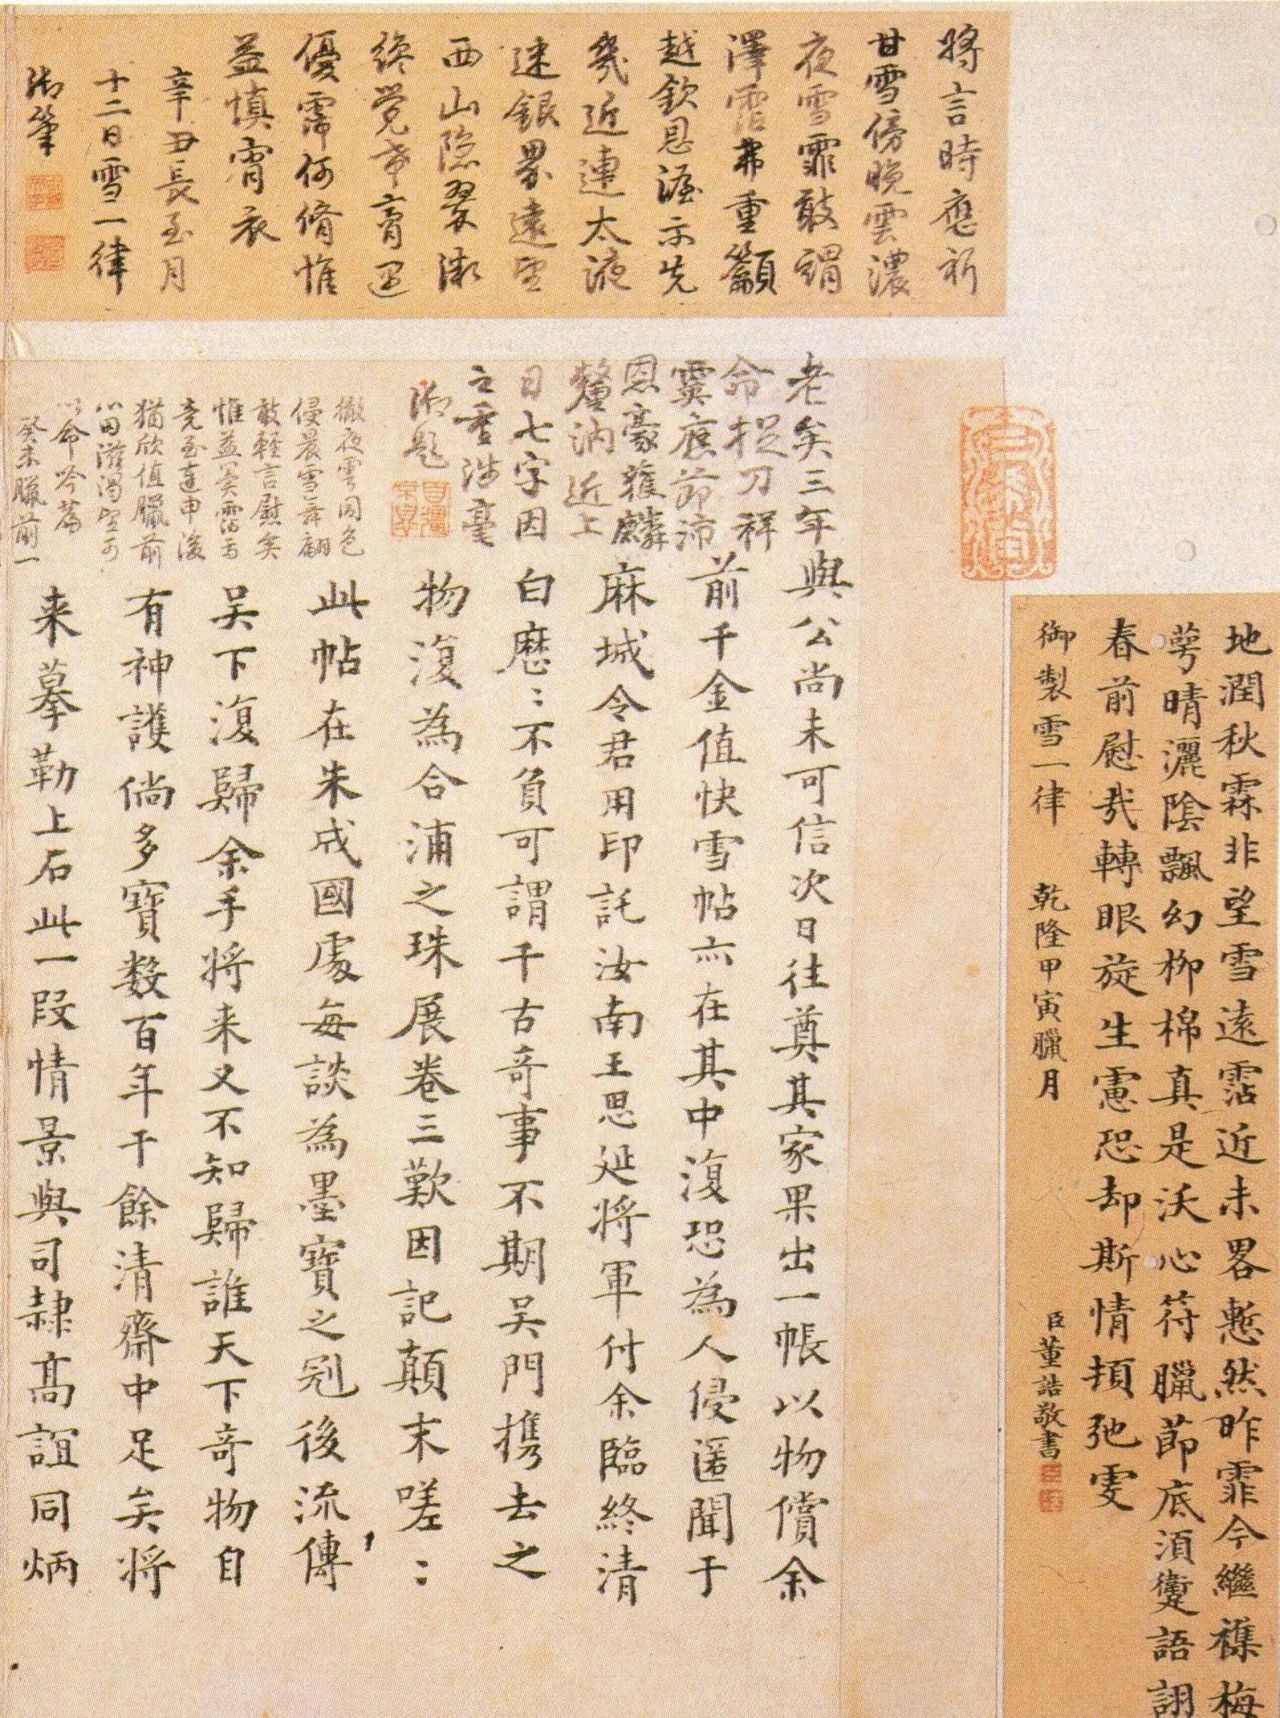 地潤秋霖非望雪遠霑近未畧慙然昨霏今繼襍梅
萼晴灑陰飄幻柳棉真是沃心符臘節底須蹇語詡
春前慰哉轉眼旋生慮恐却斯情頓弛雯
御製雪一律 乾隆甲寅臘月 臣董誥敬書
將言時應祈
甘雪傍晚雲濃
夜雪霏敢謂
澤霑弗重籲
越欽恩渥示先
幾近連太液
迷銀界遠望
西山隱翠微
終覺幸膏迴
優霈何脩惟
益慎宵衣
辛丑長至月
十二日雪一律
御筆
老矣三年
命捉刀祥
霙應節沛
恩豪獲麟
近上
日七字因
御題
撤夜雲同色
侵晨雪舞翩
敢輕言慰矣
惟益冀霑焉
亮至連申後
猶欣值臘前
以命吟篇
癸未臘前一
與公尚未可信次日往奠其家果出一帳以物償余
前千金值快雪帖亦在其中復恐為人侵匿聞于
麻城令君用印託汝南王思延將軍付余臨終清
白歷〻不負可謂千古奇事不期吴門携去之
物復為合浦之珠展卷三歎因記顛末嗟〻
此帖在朱成國處每談為墨寶之冠後流傳
吴下復歸余手將来又不知歸誰天下奇物自
有神護倘多寶數百年于餘清齋中足矣將
来摹勒上石此一段情景與司隸髙誼同炳